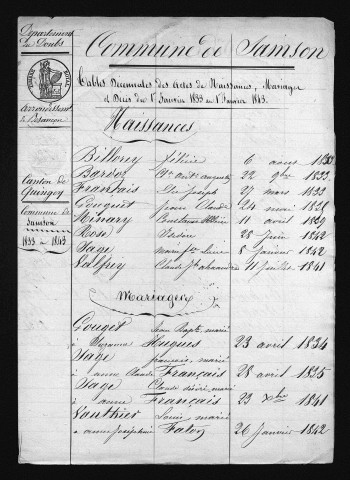 Département
du Doubs
TIMBRE ROYAL
Arrondissement
de Besançon
Canton de
Quingey
Commune de
Samson
1833 à 1843
Commune de Samson
Tables Décennales des Actes de Naissances, Mariages
et Décès du 1er Janvier 1833 au 1er Janvier 1843.
Naissances
Billerey 6 1833
Bardot 22 9bre 1833
Français Joseph 27 mars 1833
Gouguet Claude 24 mai 1838
Minary 11 avril 1839
Rose Isidore 28 Juin 1842
Sage 8 Janvier 1842
Valfrey Claude 11 Juillet 1841
Mariages
Gouget Jean Bapt. marié
à Hugues 23 avril 1834
Sage françois, marié
à anne Claude Français 28 avril 1835
Sage Claude désiré, marié
à anne Français 23 Xbre 1841
Vauthier Louis marié
à anne Joséphine 26 Janvier 1842